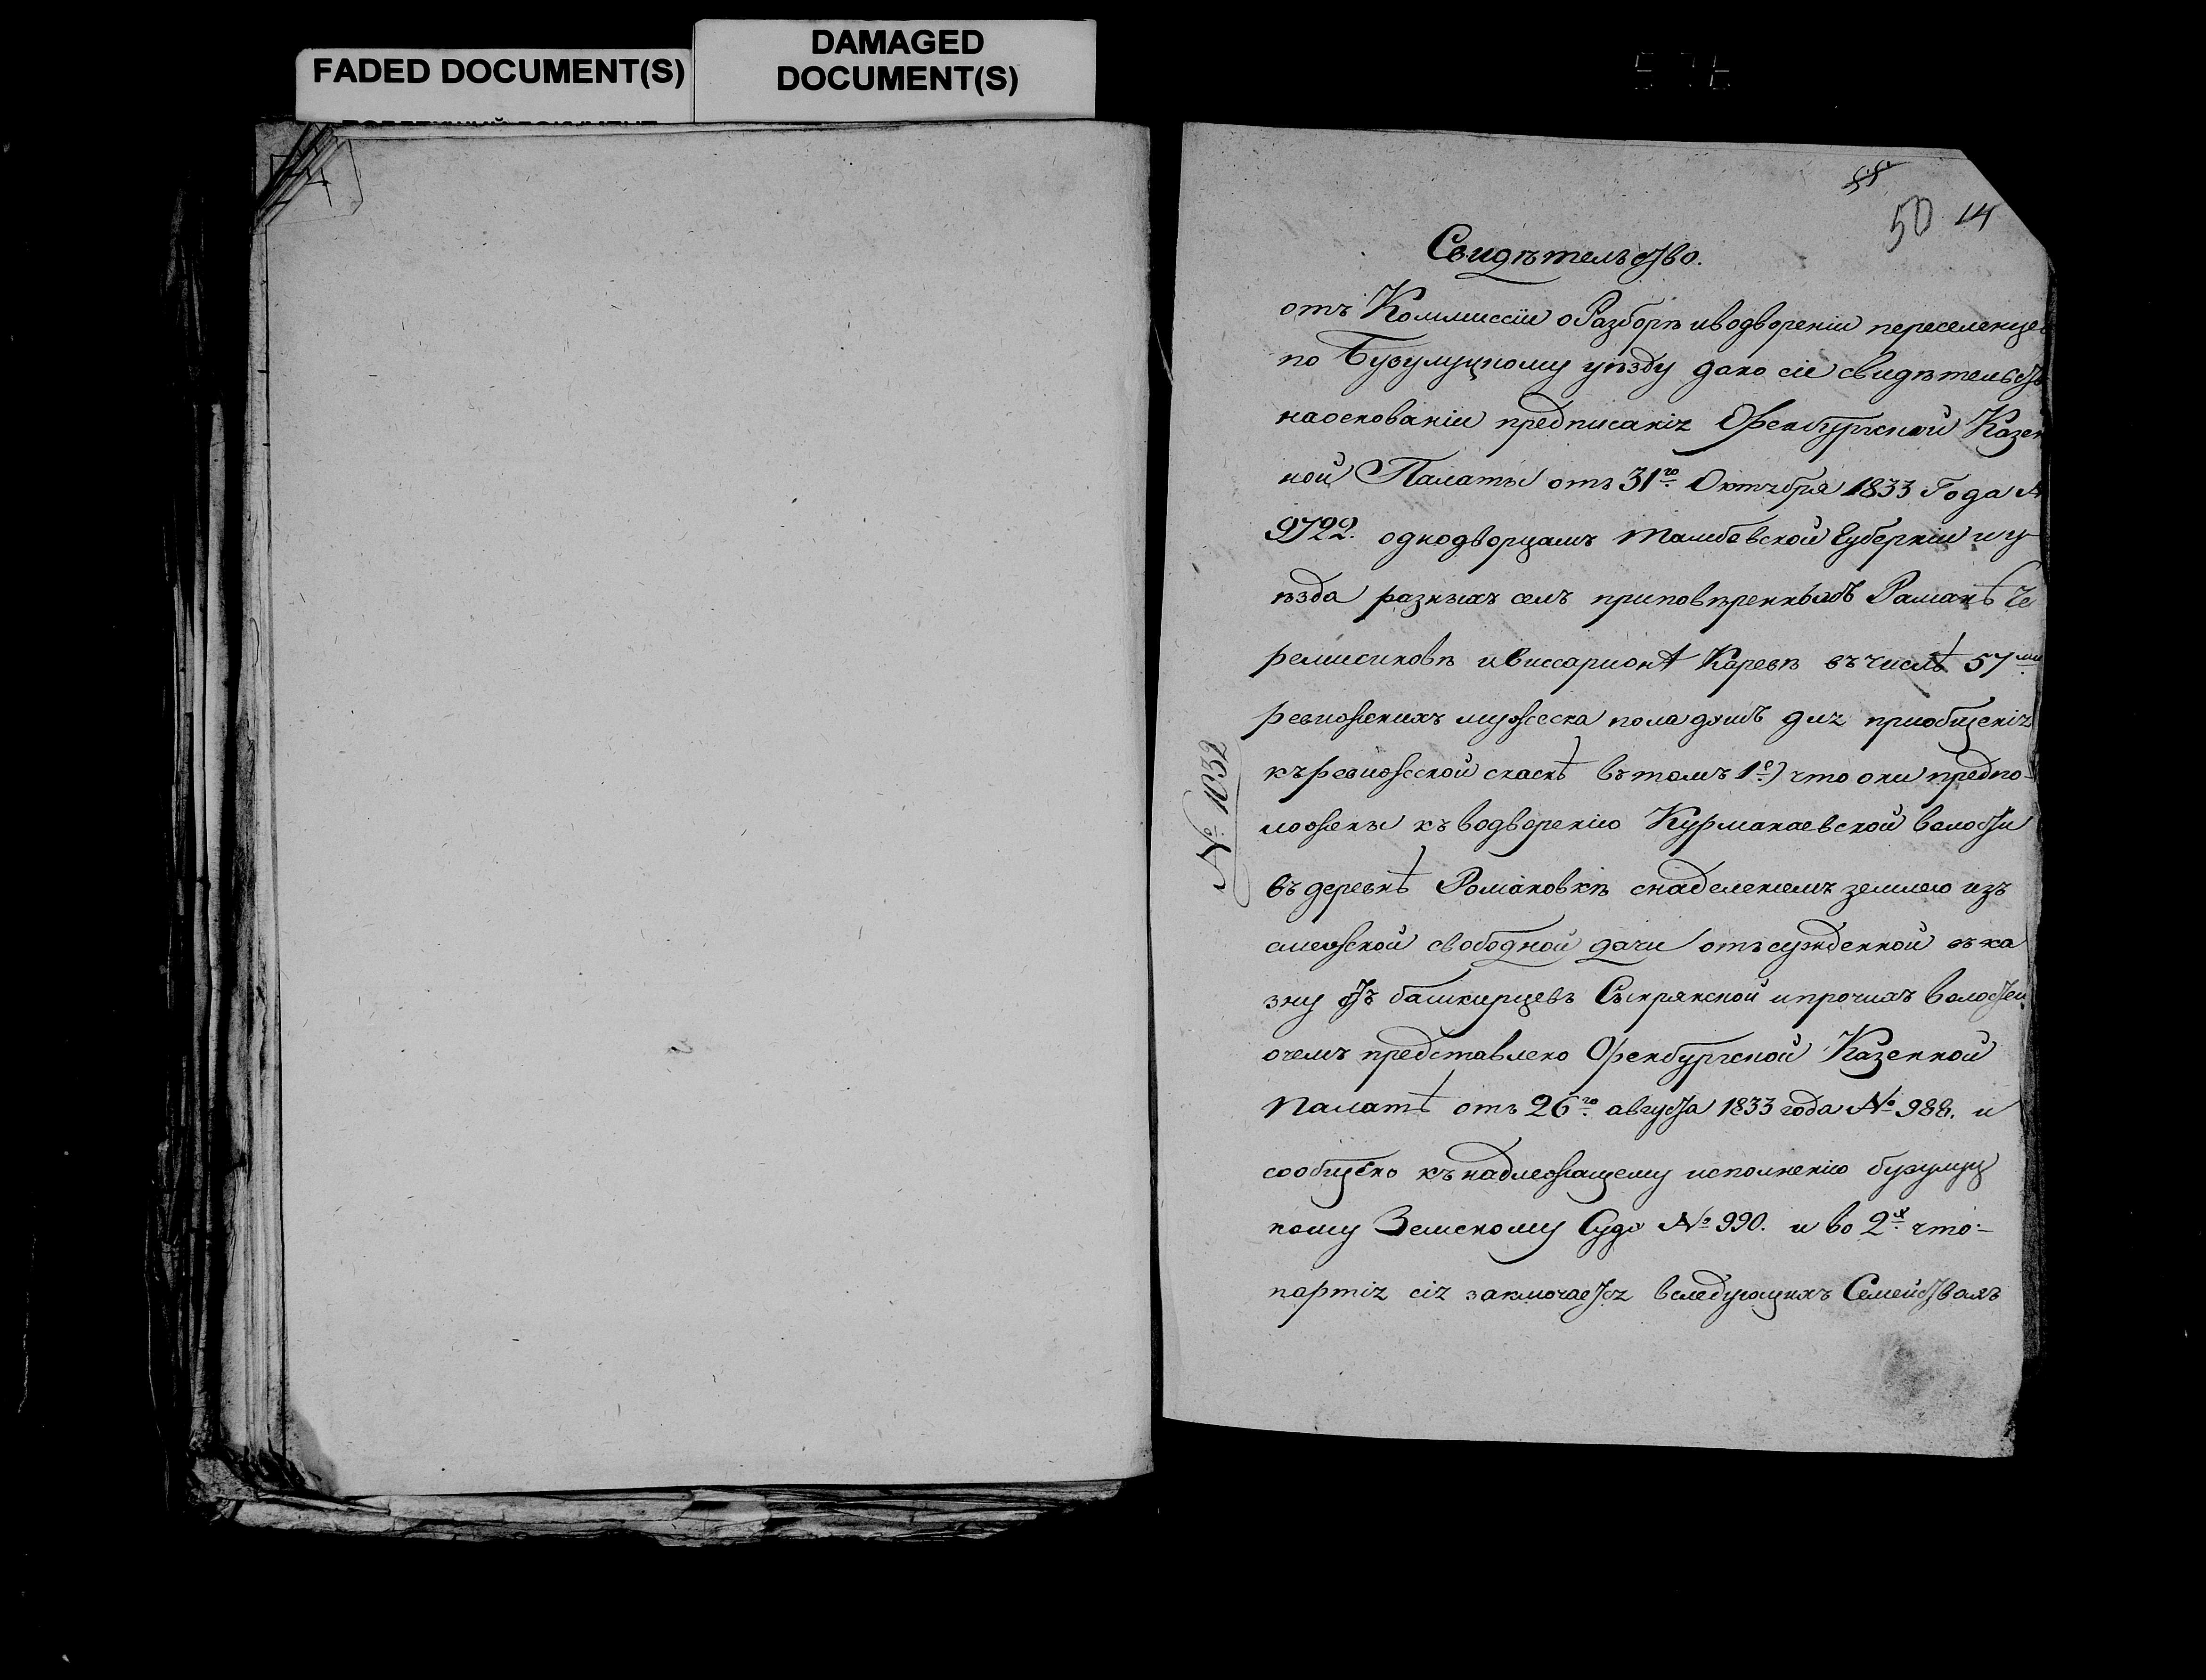 FADED DOCUMENT(S)
DAMAGED
DOCUMENT(S)
50 14
Свидѣтельство.
отъ Коммиссіи о Разборѣ иводвореніи переселенцев
по Бузулуцкому уѣзду дано сіе свидѣтельств
наоснованіи предписанія Оренбургской Казен
ной Палаты отъ 31го Октября 1833 Года №
9722. однодворцамъ тамбовской Губерніи и у
ѣзда разныхъ селъ приповѣренныхъ Раманѣ Че
ремисиковѣ ивиссарионѣ Каревѣ въ числѣ 57ми
ревижскихъ мужеска пола душъ для приобщенія
къ ревижской скаскѣ въ томъ 1е) что они предпо-
ложены къ водворенію Курманаевской волости
въ деревнѣ Романовкѣ снаделениемъ землею изъ
смежской свободной дачи отъсужденной въ ка
зну отъ башкирцевъ Сынрянской ипрочихъ волостей
очемъ представлено Оренбургской Казенной
Палатѣ отъ 26го августа 1833 года № 988. и
сообщено къ надлежащему исполнению бузулуц
кому Земскому Суду № 990. и во 2х что-
партія сія заключается вследующихъ Семействахъ
№ 1032